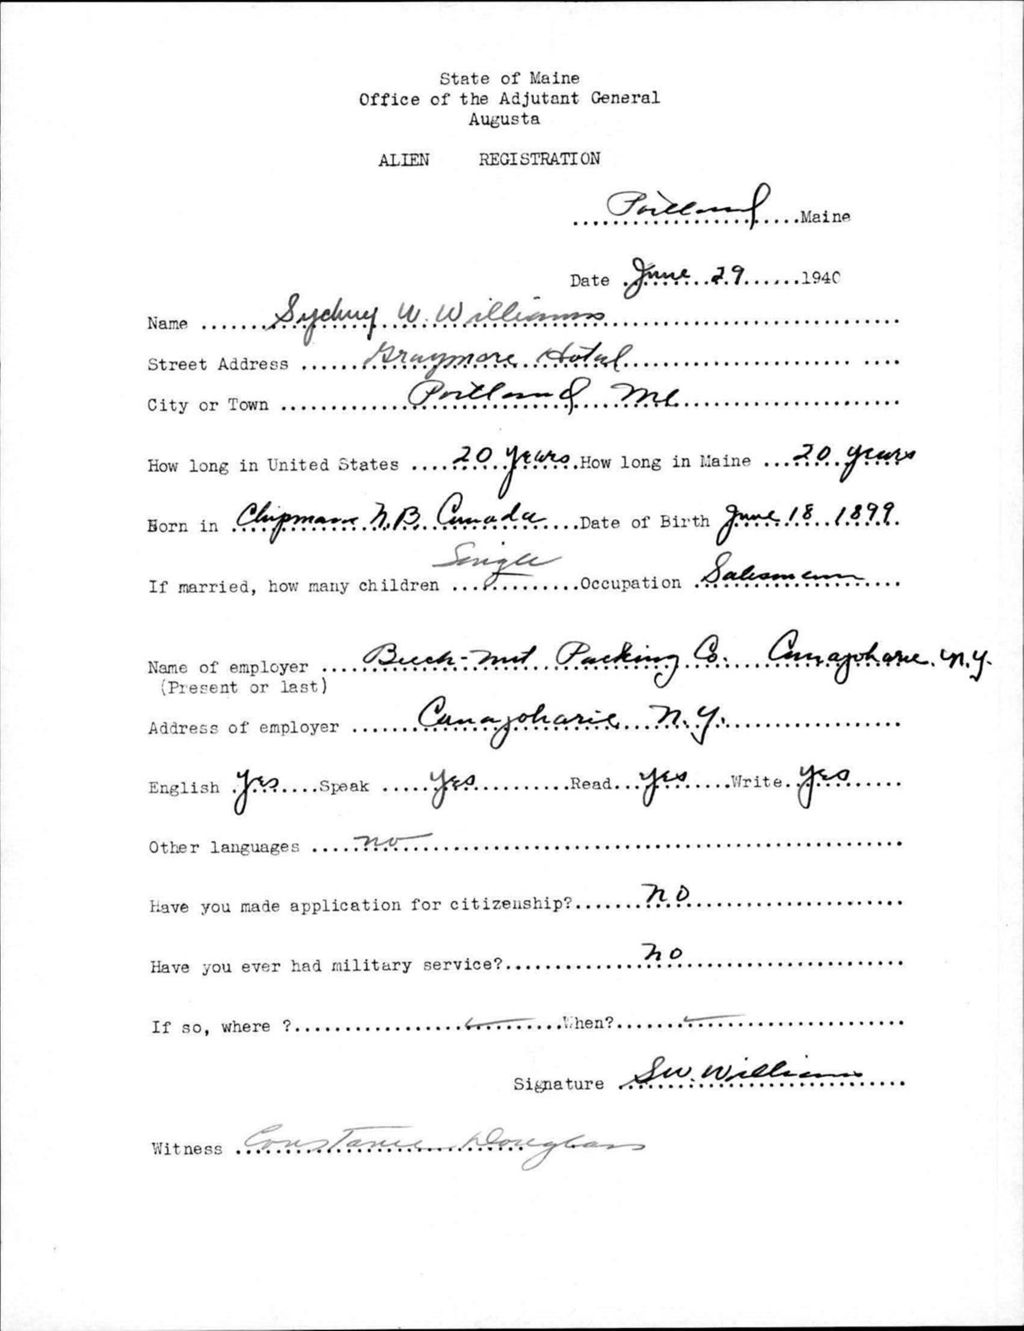 State of Maine
Office of the Adjutant General
Augusta
ALIEN REGISTRATION
Portland Maine
Date June 29 1940
Name Sydney W. Williams
Street Address Graymore Hotel
City or Town Portland Me
How long in United States 20 years How long in Maine 20 years
Born in Chipman N.B. Canada Date of Birth June 18 1899
If married, how many children Single Occupation Salesman
Name of employer Beech-nut Packing Co. Canajoharie. N.Y.
(Present or last)
Address of employer Canajoharie N.Y.
English Yes Speak Yes Read Yes Write Yes
Other languages no
Have you made application for citizenship? No
Have you ever had military service? no
If so, where ? When?
Signature S.W. Williams
Witness Constance Douglass